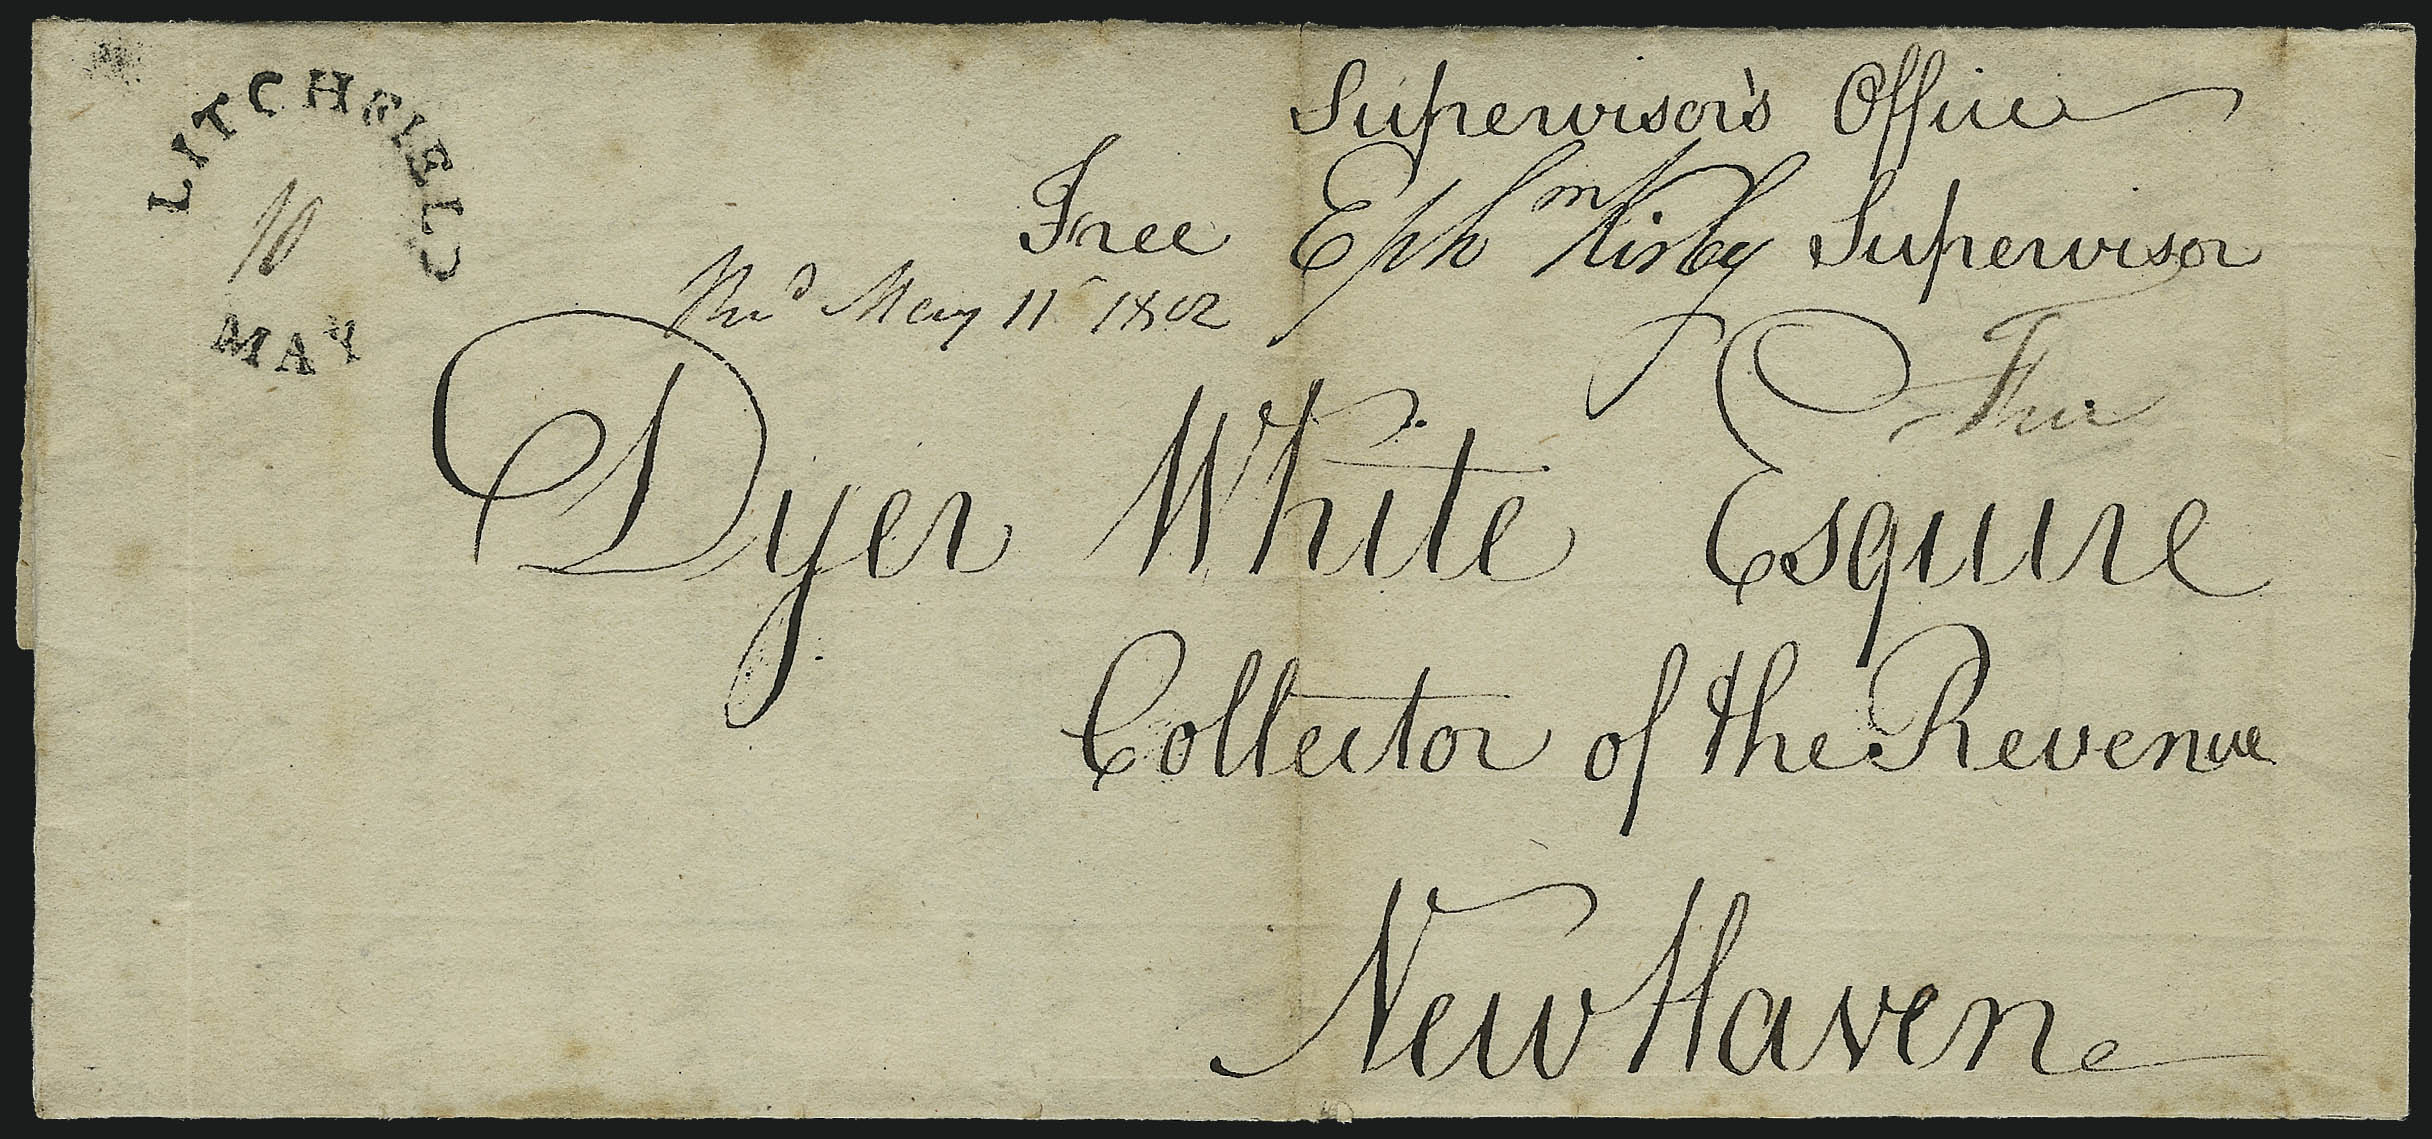 LITCHFIELD
10
MAY
Supervisor's Office
Free Ephm Kirby Supervisor
Recd May 11 1802
Free
Dyer White Esquire
Collector of the Revenue
New Haven